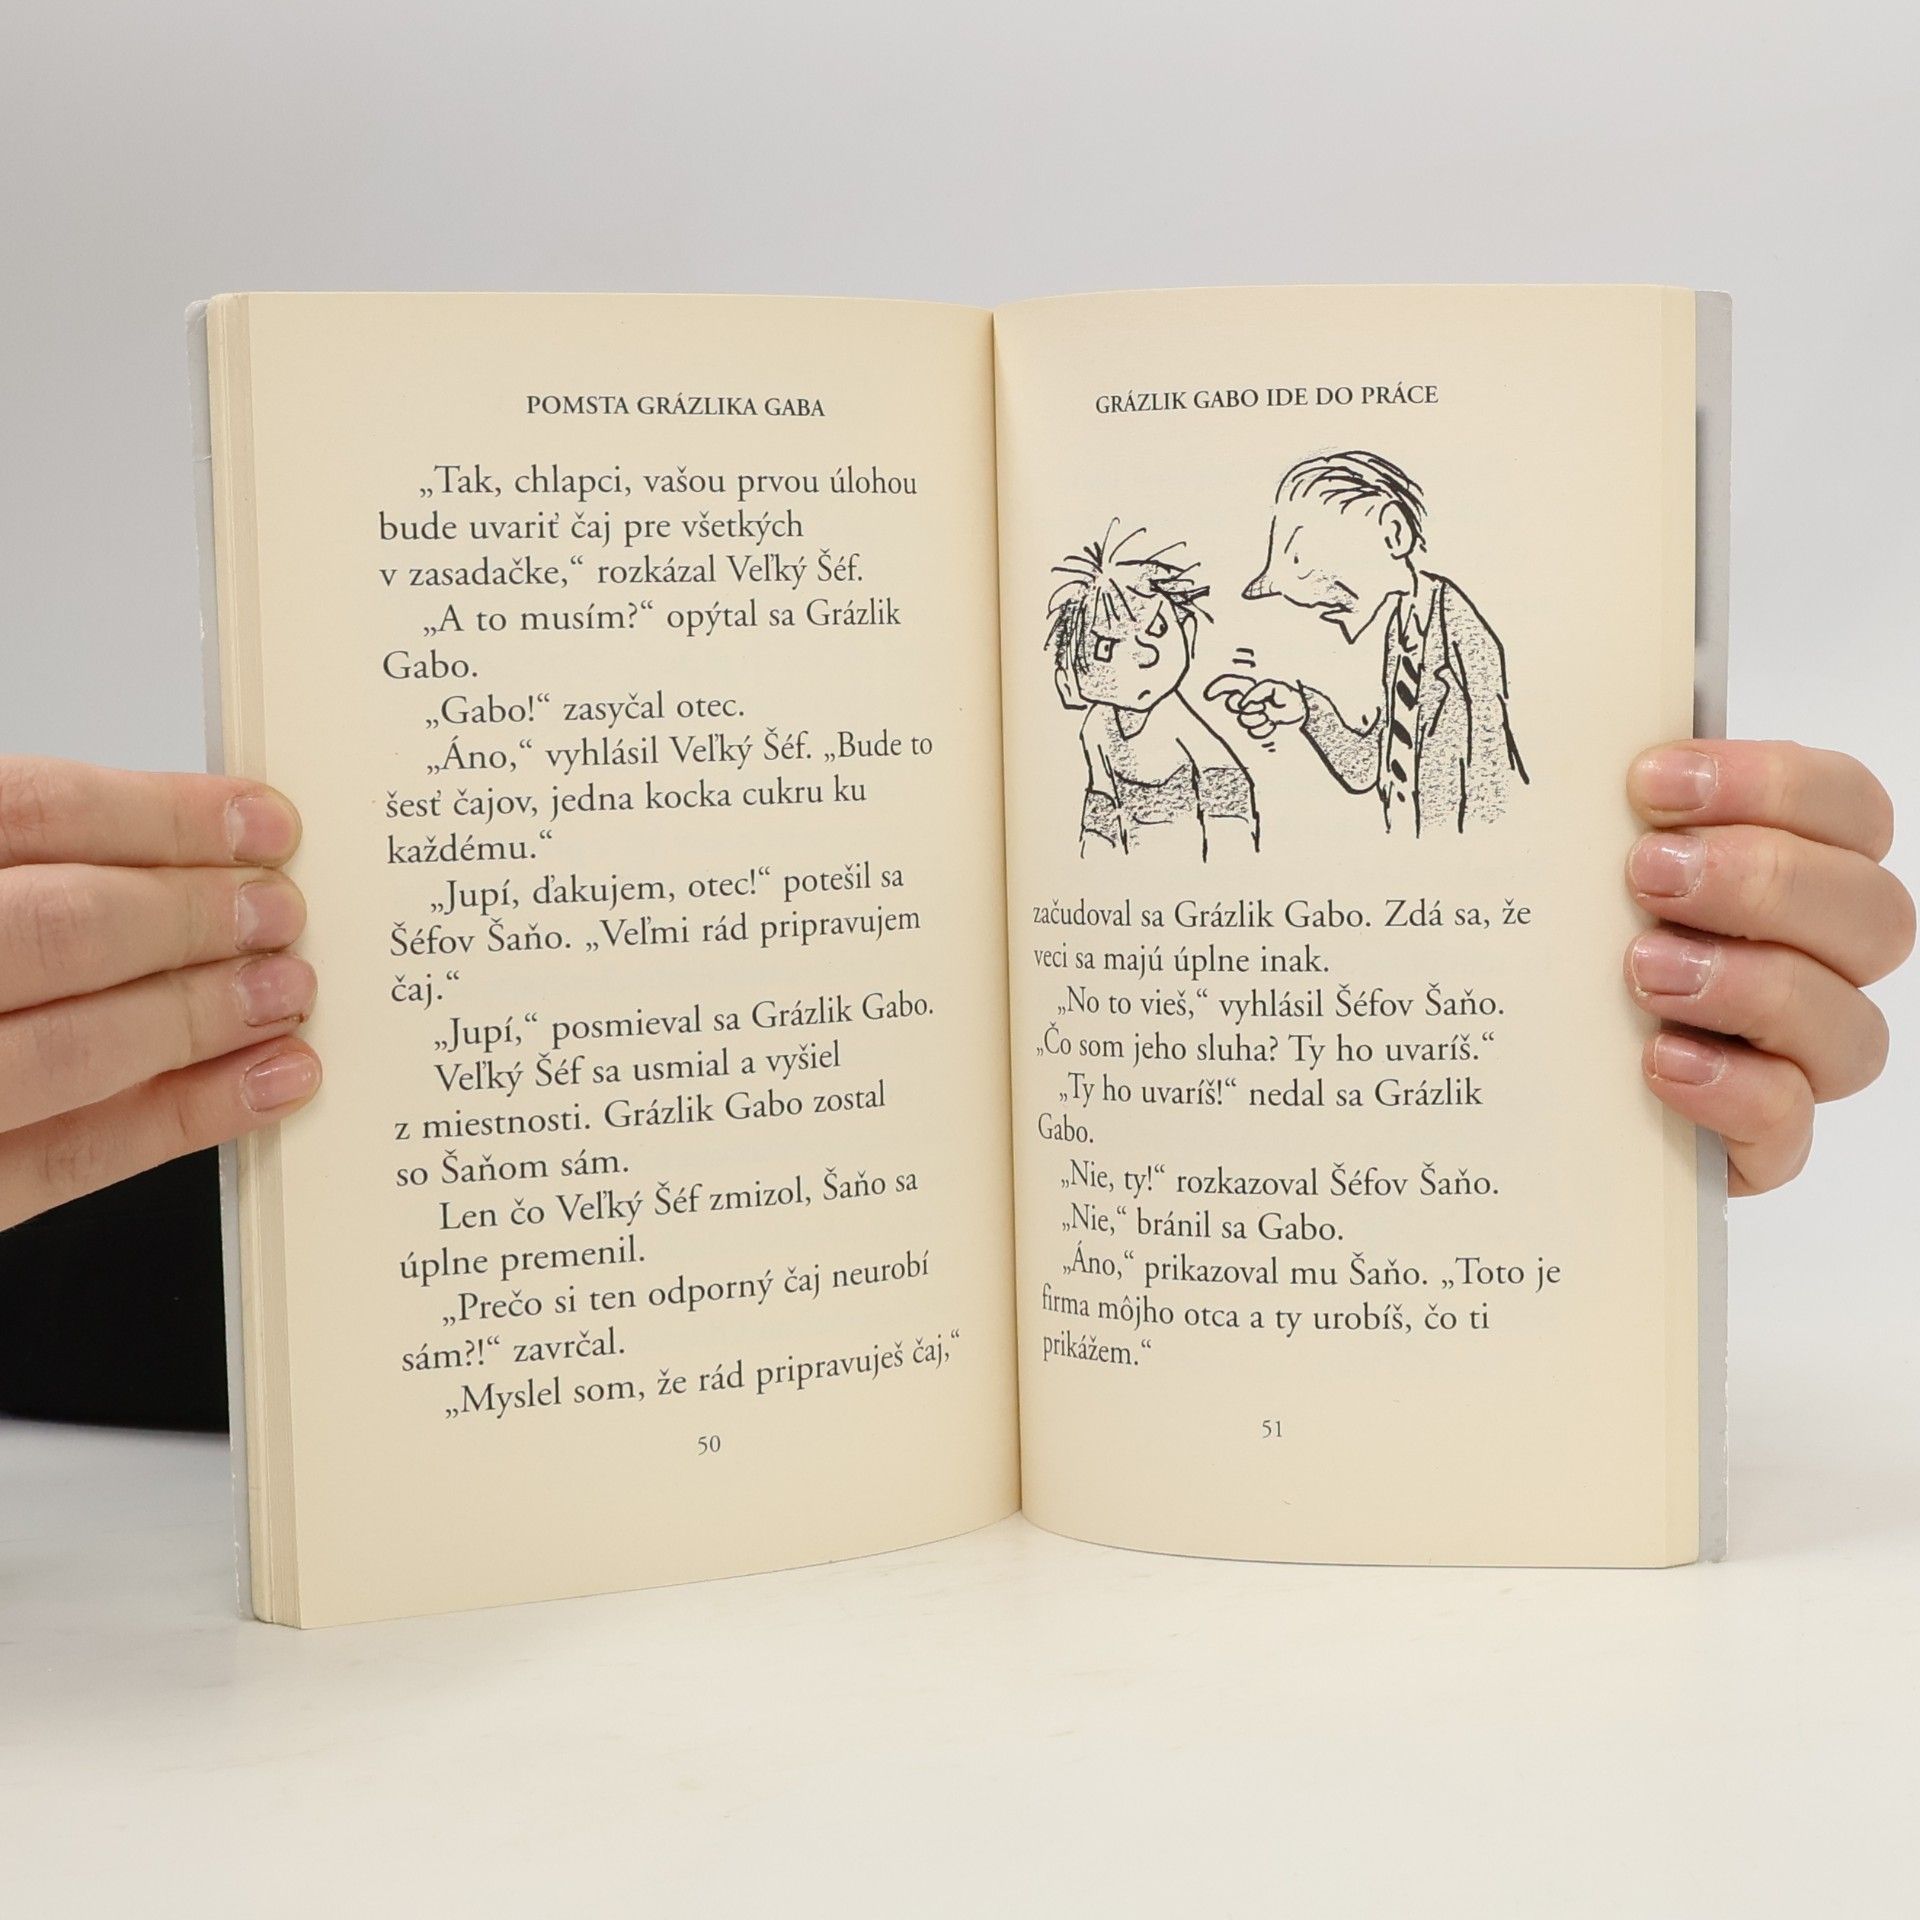 POMSTA GRÁZLIKA GABA
„Tak, chlapci, vašou prvou úlohou
bude uvariť čaj pre všetkých
v zasadačke,“ rozkázal Veľký Šéf.
„A to musím?“ opýtal sa Grázlik
Gabo.
„Gabo!“ zasyčal otec.
„Áno,“ vyhlásil Veľký Šéf. „Bude to
šesť čajov, jedna kocka cukru ku
každému.“
„Jupí, ďakujem, otec!“ potešil sa
Šéfov Šaňo. „Veľmi rád pripravujem
čaj.“
„Jupí,“ posmieval sa Grázlik Gabo.
Veľký Šéf sa usmial a vyšiel
z miestnosti. Grázlik Gabo zostal
so Šaňom sám.
Len čo Veľký Šéf zmizol, Šaňo sa
úplne premenil.
„Prečo si ten odporný čaj neurobí
sám?!“ zavrčal.
„Myslel som, že rád pripravuješ čaj,“
50
GRÁZLIK GABO IDE DO PRÁCE
začudoval sa Grázlik Gabo. Zdá sa, že
veci sa majú úplne inak.
„No to vieš,“ vyhlásil Šéfov Šaňo.
„Čo som jeho sluha? Ty ho uvaríš.“
„Ty ho uvaríš!“ nedal sa Grázlik
Gabo.
„Nie, ty!“ rozkazoval Šéfov Šaňo.
„Nie,“ bránil sa Gabo.
„Áno,“ prikazoval mu Šaňo. „Toto je
firma môjho otca a ty urobíš, čo ti
prikážem.“
51